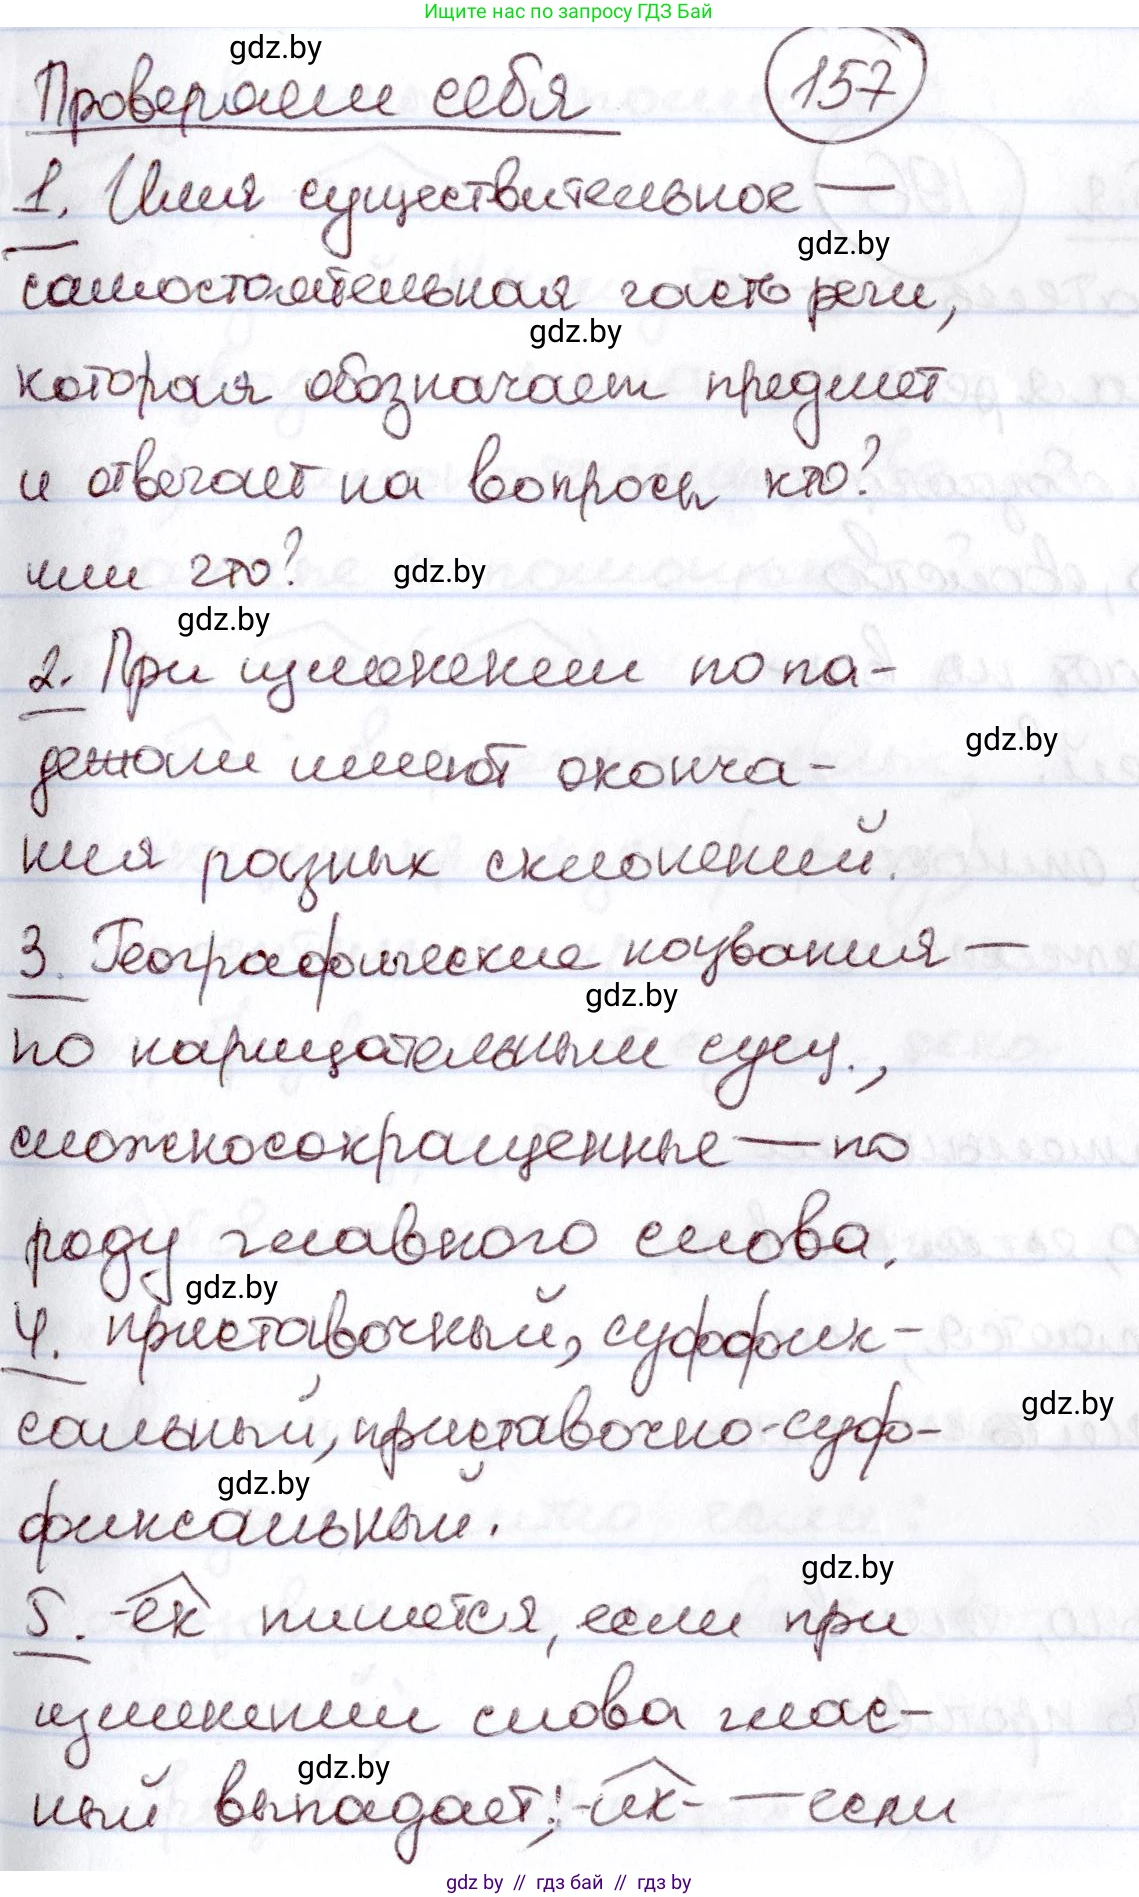 Ищите нас по запросу ГДЗ Бай
gdz.by
Проверяем себя 157
1. Имя существительное —
gdz.by
самостоятельная часть речи,
gdz.by
которая обозначает предмет
и отвечает на вопросы кто?
или что?
gdz.by
gdz.by
2. При изменении по па-
gdz.by
дежам имеют оконча-
ния разных склонений.
3. Географические названия —
gdz.by
по нарицательным сущ.,
сложносокращенные — по
роду главного слова.
gdz.by
4. приставочный, суффик-
gdz.by
сальный, приставочно-суф-
gdz.by
фиксальный.
gdz.by
5. -ек пишется, если при
изменении слова глас-
gdz.by
ный выпадает; -ик- — если
gdz.by // гдз бай // гдз by